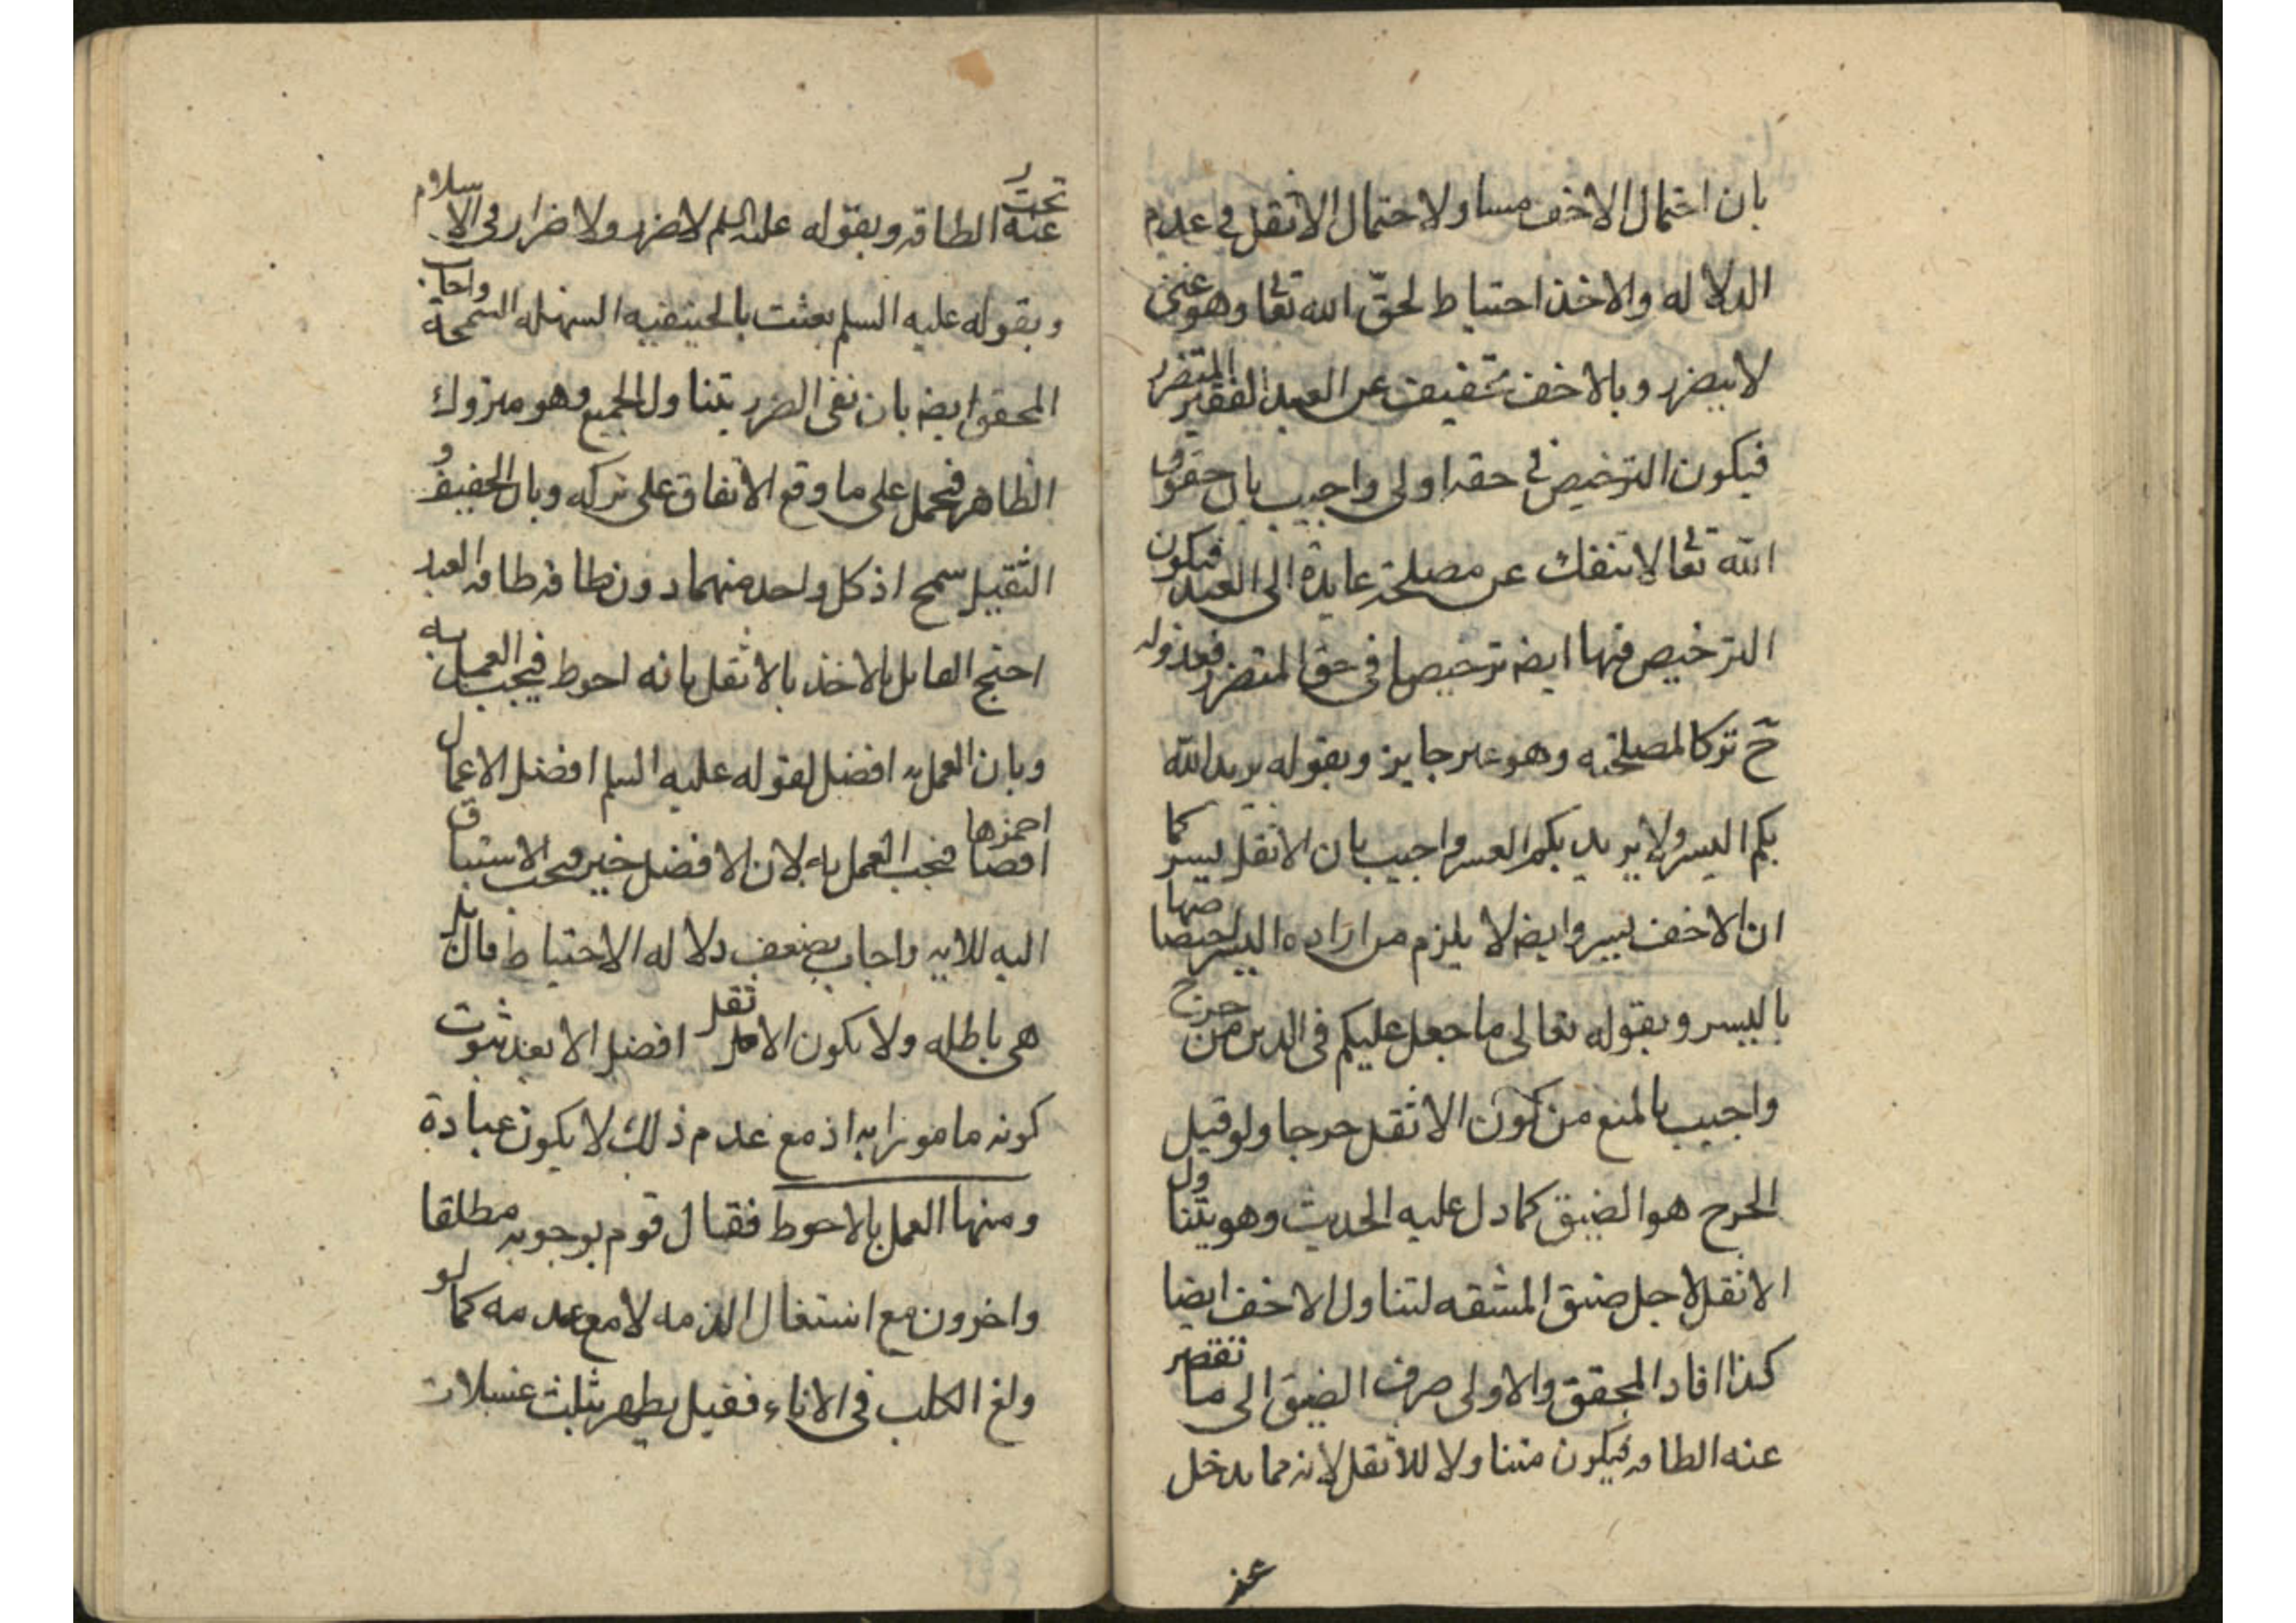 بان احتمال الاخف مساو لاحتمال الاثقل في عدم
الدلاله والاخذ احتياط لحقّ الله تعا وهو غني
لا يتضرر وبالاخف تخفيف عن العبد الفقير المتضرر
فيكون الترخيص في حقه اولى واجيب بان حقوق
الله تعا لا تنفك عن مصلحة عايدة الى العبد فيكون
الترخيص فيها ايضه ترخيصا في حق المتضرر فعدوله
ح تركا لمصلحته وهو غير جايز وبقوله يريد الله
بكم اليسر ولا يريد بكم العسر واجيب بان الاثقل يسر كما
ان الاخف يسر وايضه لا يلزم من اراده اليسر
باليسر وبقوله تعالى ما جعل عليكم في الدين من حرج
واجيب بالمنع من كون الاثقل حرجا ولو قيل
الحرج هو الضيق كما دل عليه الحديث وهو يتناول
الاثقل لاجل ضيق المشقه لتناول الاخف ايضا
كذا افاد المحقق والاولى صرف الضيق الى ما تقصر
عنه الطاقه فيكون متناولا للاثقل لانه مما يدخل
عنه
تحت
عنه الطاقه وبقوله عليه السلم لا ضرر ولا ضرار في الاسلام
وبقوله عليه السلم بعثت بالحنيفيه السهله السمحة واجاب
المحقق ايضه بان نفى الضرر يتناول الجميع وهو متروك
الظاهر فيحمل على ما وقع الاتفاق على تركه وبان الخفيف و
الثقيل سمح اذ كل واحد منهما دون طاقه طاقه العبد
احتج القايل بالاخذ بالاثقل بانه احوط فيجب العمل به
وبان العمل به افضل لقوله عليه السلم افضل الاعمال
احمزها فيجب العمل به لان الافضل خير فيجب الاستباق
اليه للايه واجاب بضعف دلاله الاحتياط
هي باطله ولا يكون الاثقل افضل الا بعد ثبوت
كونه مامورا به اذ مع عدم ذلك لا يكون عبادة
ومنها العمل بالاحوط فقال قوم بوجوبه مطلقا
واخرون مع اشتغال الذمه لا مع عدمه كما لو
ولغ الكلب في الاناء فقيل يطهر بثلث غسلات